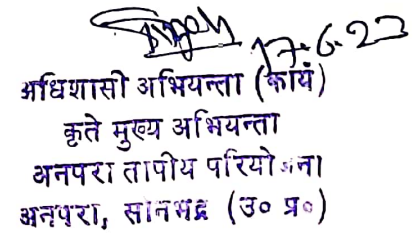 17.6.23
अधिशासी अभियन्ता (कार्य)
कृते मुख्य अभियन्ता
अनपरा तापीय परियोजना
अनपरा, सोनभद्र (उ० प्र०)